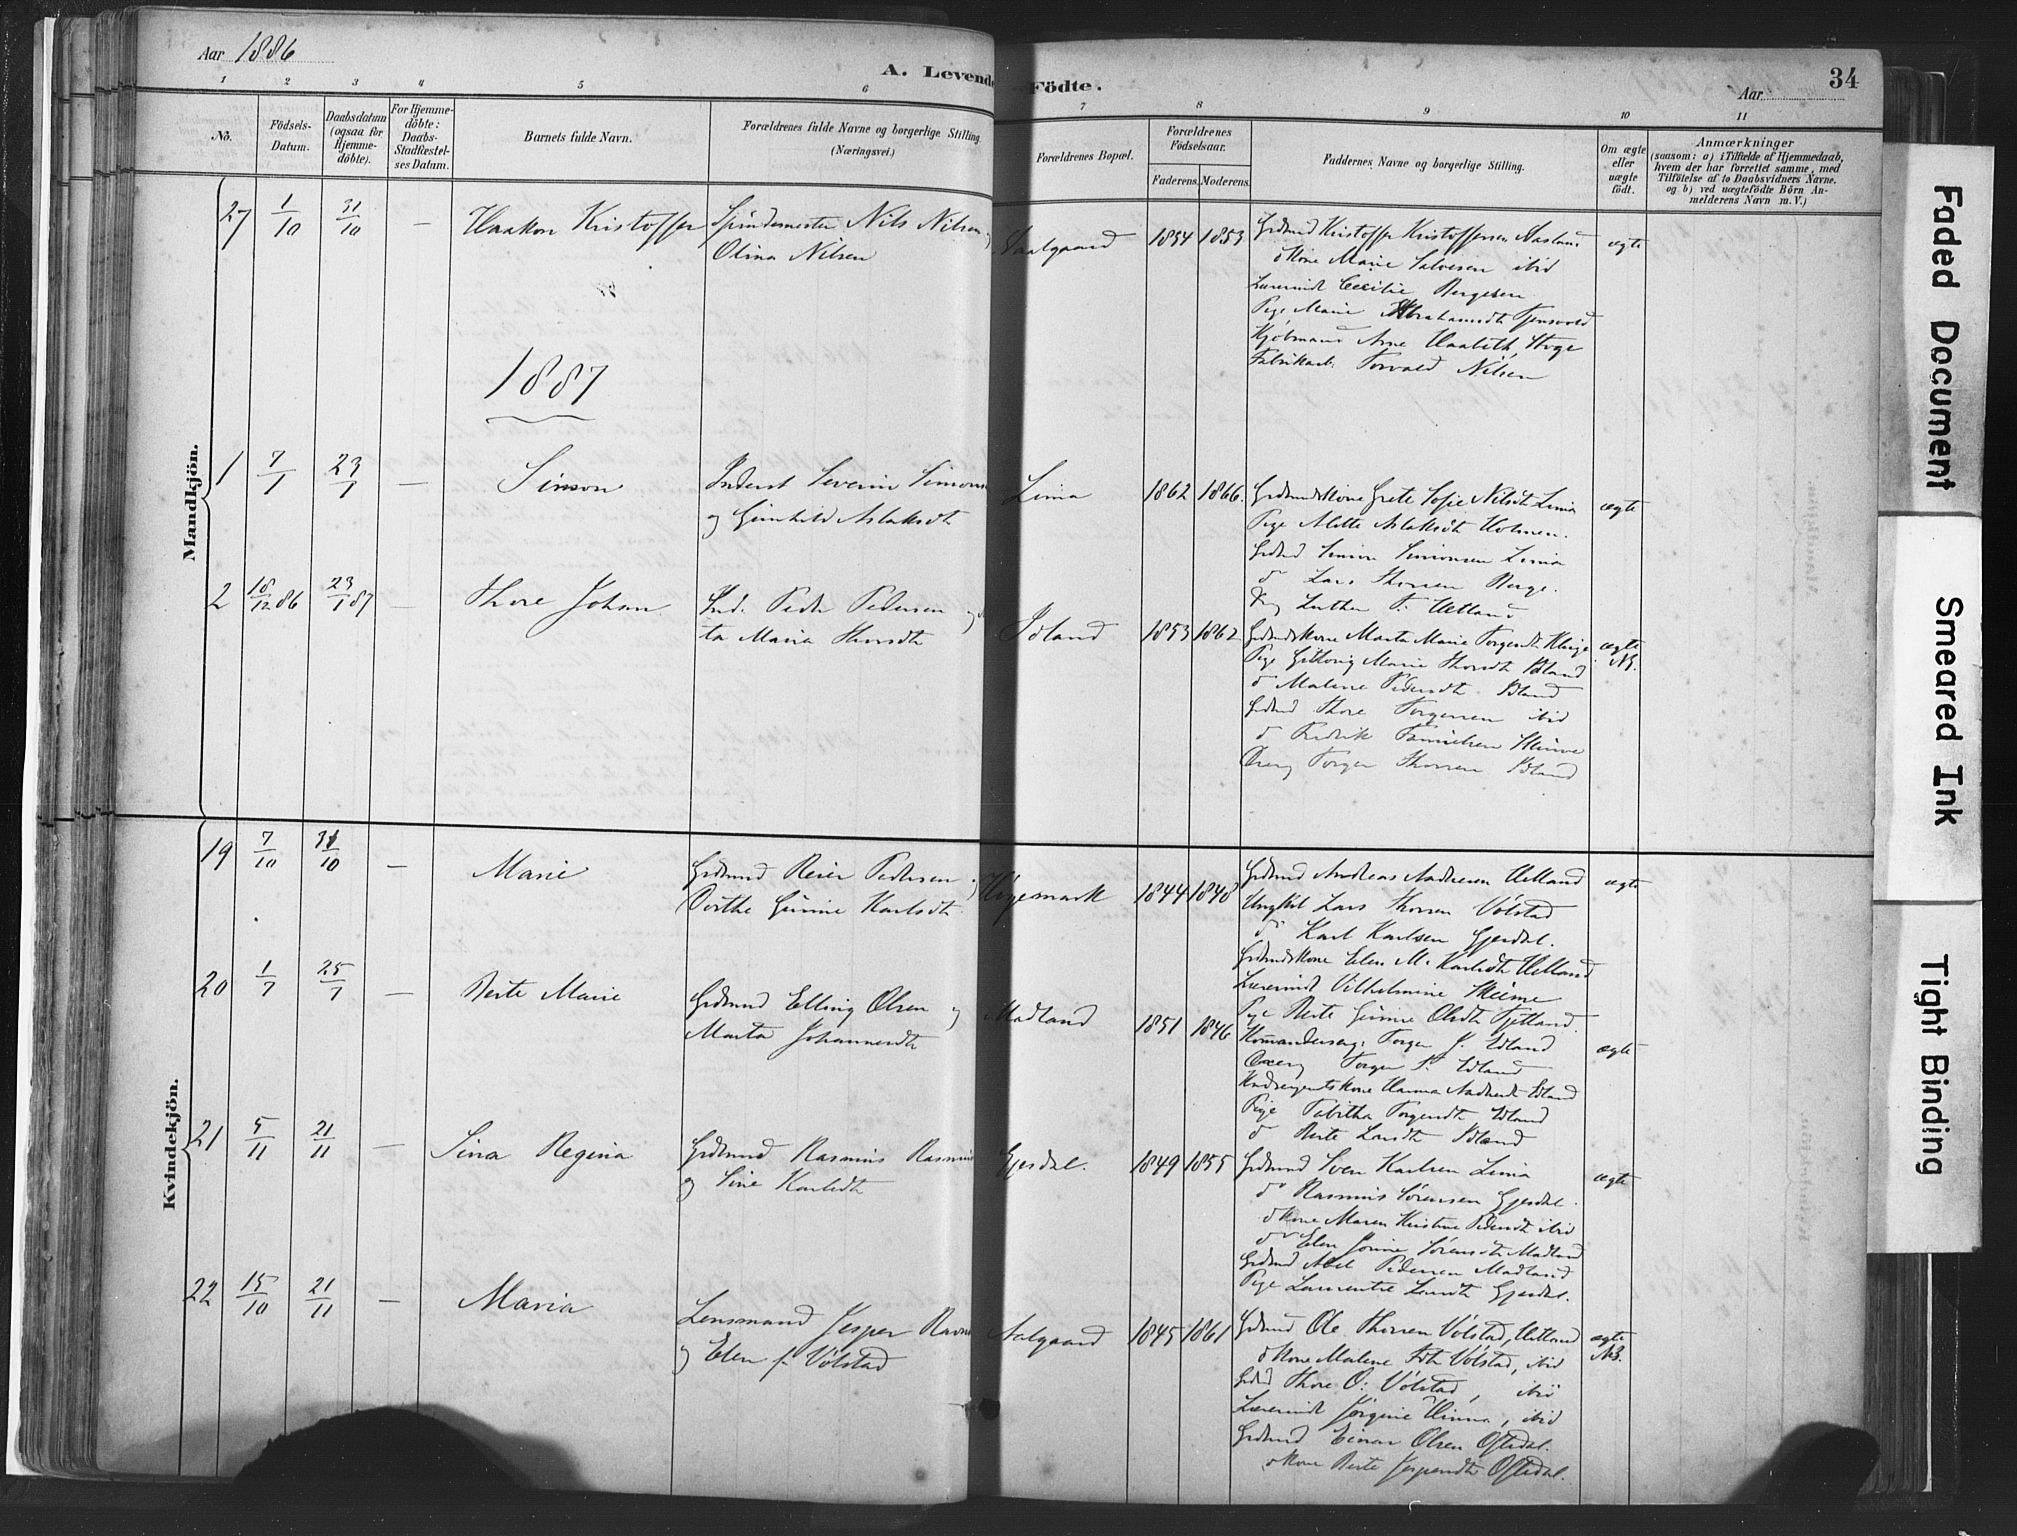 Aar 1886
A. Levende Födte.
34
Aar
1 2 3 4 5 6 7 8 9 10 11
No.
Födsels-Datum.
Daabsdatum (ogsaa for Hjemme-döbte).
For Hjemme-döbte: Daabs-Stadfæstel-ses Datum.
Barnets fulde Navn.
Forældrenes fulde Navne og borgerlige Stilling. (Næringsvei.)
Forældrenes Bopæl.
Forældrenes Födselsaar.
Faderens. Moderens.
Faddernes Navne og borgerlige Stilling.
Om ægte eller uægte födt.
Anmærkninger
(saasom: a) i Tilfælde af Hjemmedaab,
hvem der har forrettet samme, med
Tilföielse af to Daabsvidners Navne,
og b) ved uægtefödte Börn An-
melderens Navn m. V.)
Mandkjön.
27 1/10 31/10 — Haakon Kristoffer
Spindemester Nils Nilsen og
Olina Nilsen
Aalgaard 1854 1853
Grdmd Kristoffer Kristoffersen Aasland
do kone Marie Salvesen ibid
Lærerinde Cecilie Bergesen
Pige Marie Abrahamsdt
Kjøbmand Arne Haabeth, Høge
Fabrikarb. Torvald Nilsen
ægte
1887
1 7/1 23/1 — Simon
Inderst Severin Simonsen
og Gunhild Aslaksdt
Lima 1862 1866.
Grdmandskone Grete Sofie Nilsdt Lima
Pige Mette Aslaksdt Holmen.
Grdmd Simon Simonsen Lima
do Lars Thorsen Berge.
Luther T. Uetland
ægte
2 18/12 86 23/1 87 — Thore Johan
Ind. Peder Pedersen og
ta Maria Thorsdt
Idland 1853 1862
Grdmdskone Marta Marie Torgersdt
Pige Marie Thorsdt Idland
do Malene Pedersdt Idland
Grdmd Thore Torgersen ibid
do Fredrik Skeime
Torger Thorsen Idland
ægte
NB.
Kvindekjön.
19 7/10 31/10 — Marie
Grdmand Reier Pedersen og
Berthe Gurine Karlsdt
1844 1848
Grdmd Andreas Andersen Uetland
Ungkarl Lars Thorsen Vølstad
do Karl Karlsen Gjesdal.
Grdmdskone Elen M. Karlsdt Uetland
Lærerinde Vilhelmine Skeime
Pige Berte Gurine Olsdt Fjetland.
ægte
20 1/7 25/7 — Berte Marie
Grdmand Elling Olsen og
Marta Johannesdt
Madland
1851 1846
Kommanderserg. Torger J. Idland
Torger T. Idland
Hanna Idland
Pige Tabitha Torgersdt Idland
do Berte Larsdt Idland
ægte
21 5/11 21/11 — Sina Regina
Grdmand Rasmus Rasmus
og Sine Karlsdt
Gjesdal. 1849 1855
Grdmand Sven Karlsen Lima
do Rasmus Sørensen Gjesdal.
do kone Maren Kristine Pedersdt ibid
do Elen Jonine Sørensdt Madland
Grdmd Abel Pedersen Madland
Pige Laurentse Larsdt Gjesdal.
ægte
22 15/10 21/11 — Maria
Lensmand Jesper Ravn
og Elen f. Vølstad
Aalgaard 1845 1861
Grdmand Ole Thorsen Vølstad, Uetland
do kone Malene Vølstad, ibid
Grdmd Thore O. Vølstad, ibid
Lærerinde Jørgine Hinna, ibid
Grdmand Einar Olsen Oftedal.
do kone Berte Jespersdt Oftedal.
ægte
NB.
Faded Document
Smeared Ink
Tight Binding